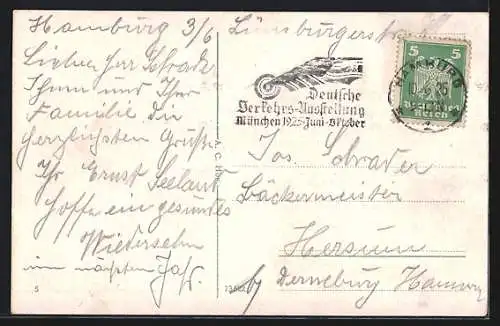 Hamburg 3/6 Lüneburgerstr.
Lieber Herr Schrader
Ihnen und Ihrer
Familie die
herzlichsten Grüße
Ihr Ernst Seeland
hoffe ein gesundes
Wiedersehn
im nächsten Jahr.
5
A. C. H.
Deutsche
Verkehrs-Ausstellung
München 1925·Juni-Oktober
5 5
Deutsches
Reich
HAMBURG
25
1
Jos. Schrader
Bäckermeister
Hersum
by Derneburg Hannov